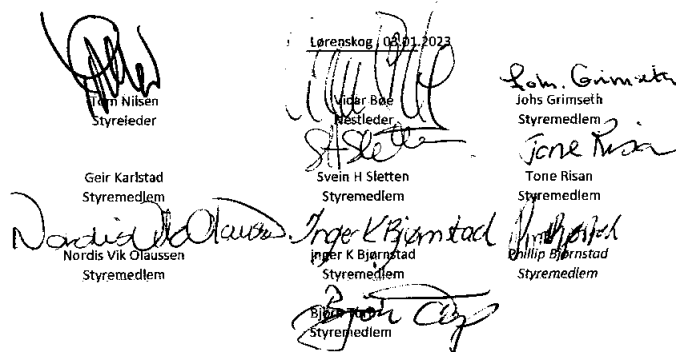 Lørenskog , 03.01.2023
Tom Nilsen
Styreleder
Vidar Bøe
Nestleder
Johs. Grimseth
Johs Grimseth
Styremedlem
Geir Karlstad
Styremedlem
SH Sletten
Svein H Sletten
Styremedlem
Tone Risan
Tone Risan
Styremedlem
Nordis Vik Olaussen
Nordis Vik Olaussen
Styremedlem
Inger K Bjørnstad
Inger K Bjørnstad
Styremedlem
Phillip Bjørnstad
Styremedlem
Styremedlem